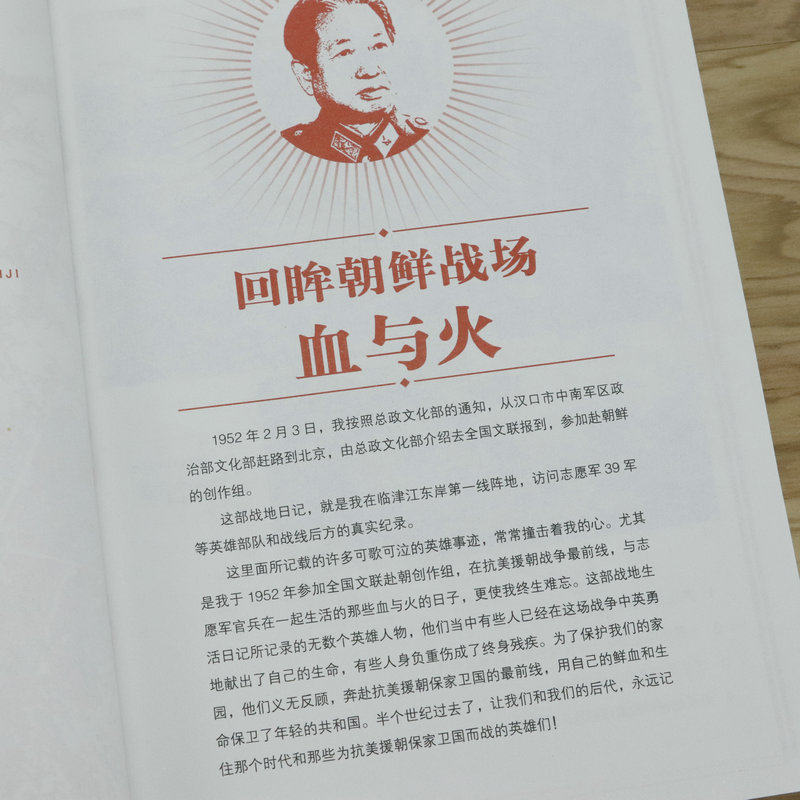 IJI
回眸朝鲜战场
血与火
1952年2月3日，我按照总政文化部的通知，从汉口市中南军区政
治部文化部赶路到北京，由总政文化部介绍去全国文联报到，参加赴朝鲜
的创作组。
这部战地日记，就是我在临津江东岸第一线阵地，访问志愿军39军
等英雄部队和战线后方的真实纪录。
这里面所记载的许多可歌可泣的英雄事迹，常常撞击着我的心。尤其
是我于1952年参加全国文联赴朝创作组，在抗美援朝战争最前线，与志
愿军官兵在一起生活的那些血与火的日子，更使我终生难忘。这部战地生
活日记所记录的无数个英雄人物，他们当中有些人已经在这场战争中英勇
地献出了自己的生命，有些人身负重伤成了终身残疾。为了保护我们的家
园，他们义无反顾，奔赴抗美援朝保家卫国的最前线，用自己的鲜血和生
命保卫了年轻的共和国。半个世纪过去了，让我们和我们的后代，永远记
住那个时代和那些为抗美援朝保家卫国而战的英雄们！